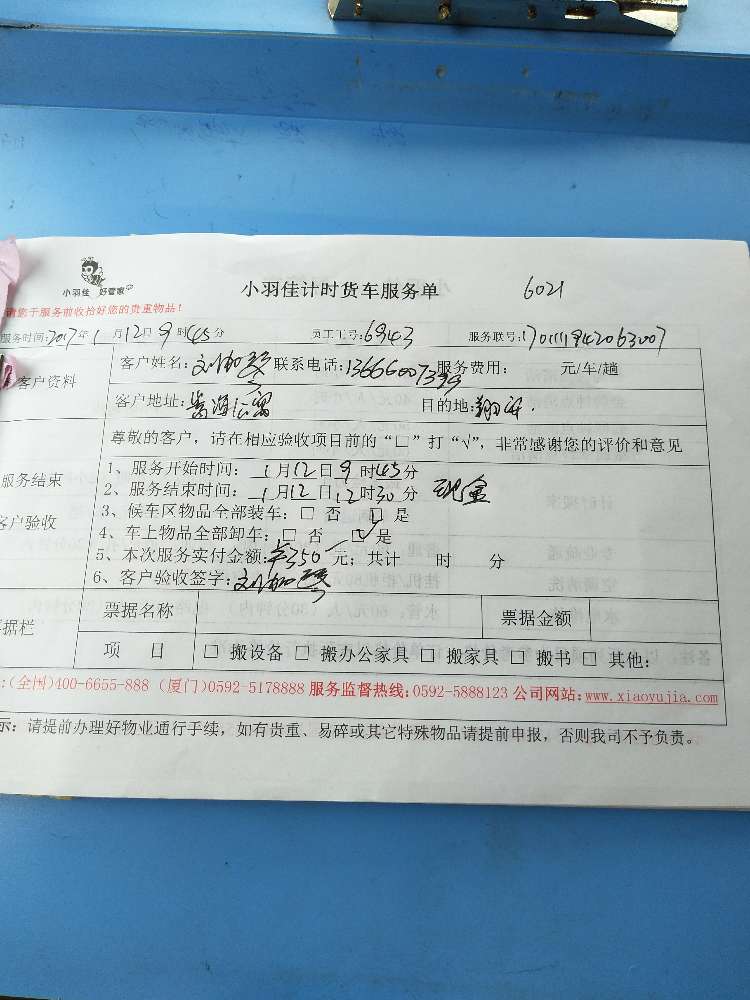 小羽佳 好管家
小羽佳计时货车服务单 6021
请您于服务前收拾好您的贵重物品!
服务时间:2017年1月12日9时45分 员工工号:6943 服务联号:
客户资料
客户姓名: 联系电话: 服务费用: 元/车/趟
客户地址: 目的地:
尊敬的客户,请在相应验收项目前的“□”打“√”,非常感谢您的评价和意见
服务结束
客户验收
1、服务开始时间:1月12日9时45分
2、服务结束时间:1月12日12时30分 现金
3、候车区物品全部装车:□ 否 □ 是
4、车上物品全部卸车:□ 否 □ 是
5、本次服务实付金额:¥350元;共计 时 分
6、客户验收签字:
据栏
票据名称 票据金额
项 目 □ 搬设备 □ 搬办公家具 □ 搬家具 □ 搬书 □ 其他:
:(全国)400-6655-888 (厦门)0592-5178888 服务监督热线:0592-5888123 公司网站:www.xiaoyujia.com
示:请提前办理好物业通行手续,如有贵重、易碎或其它特殊物品请提前申报,否则我司不予负责。